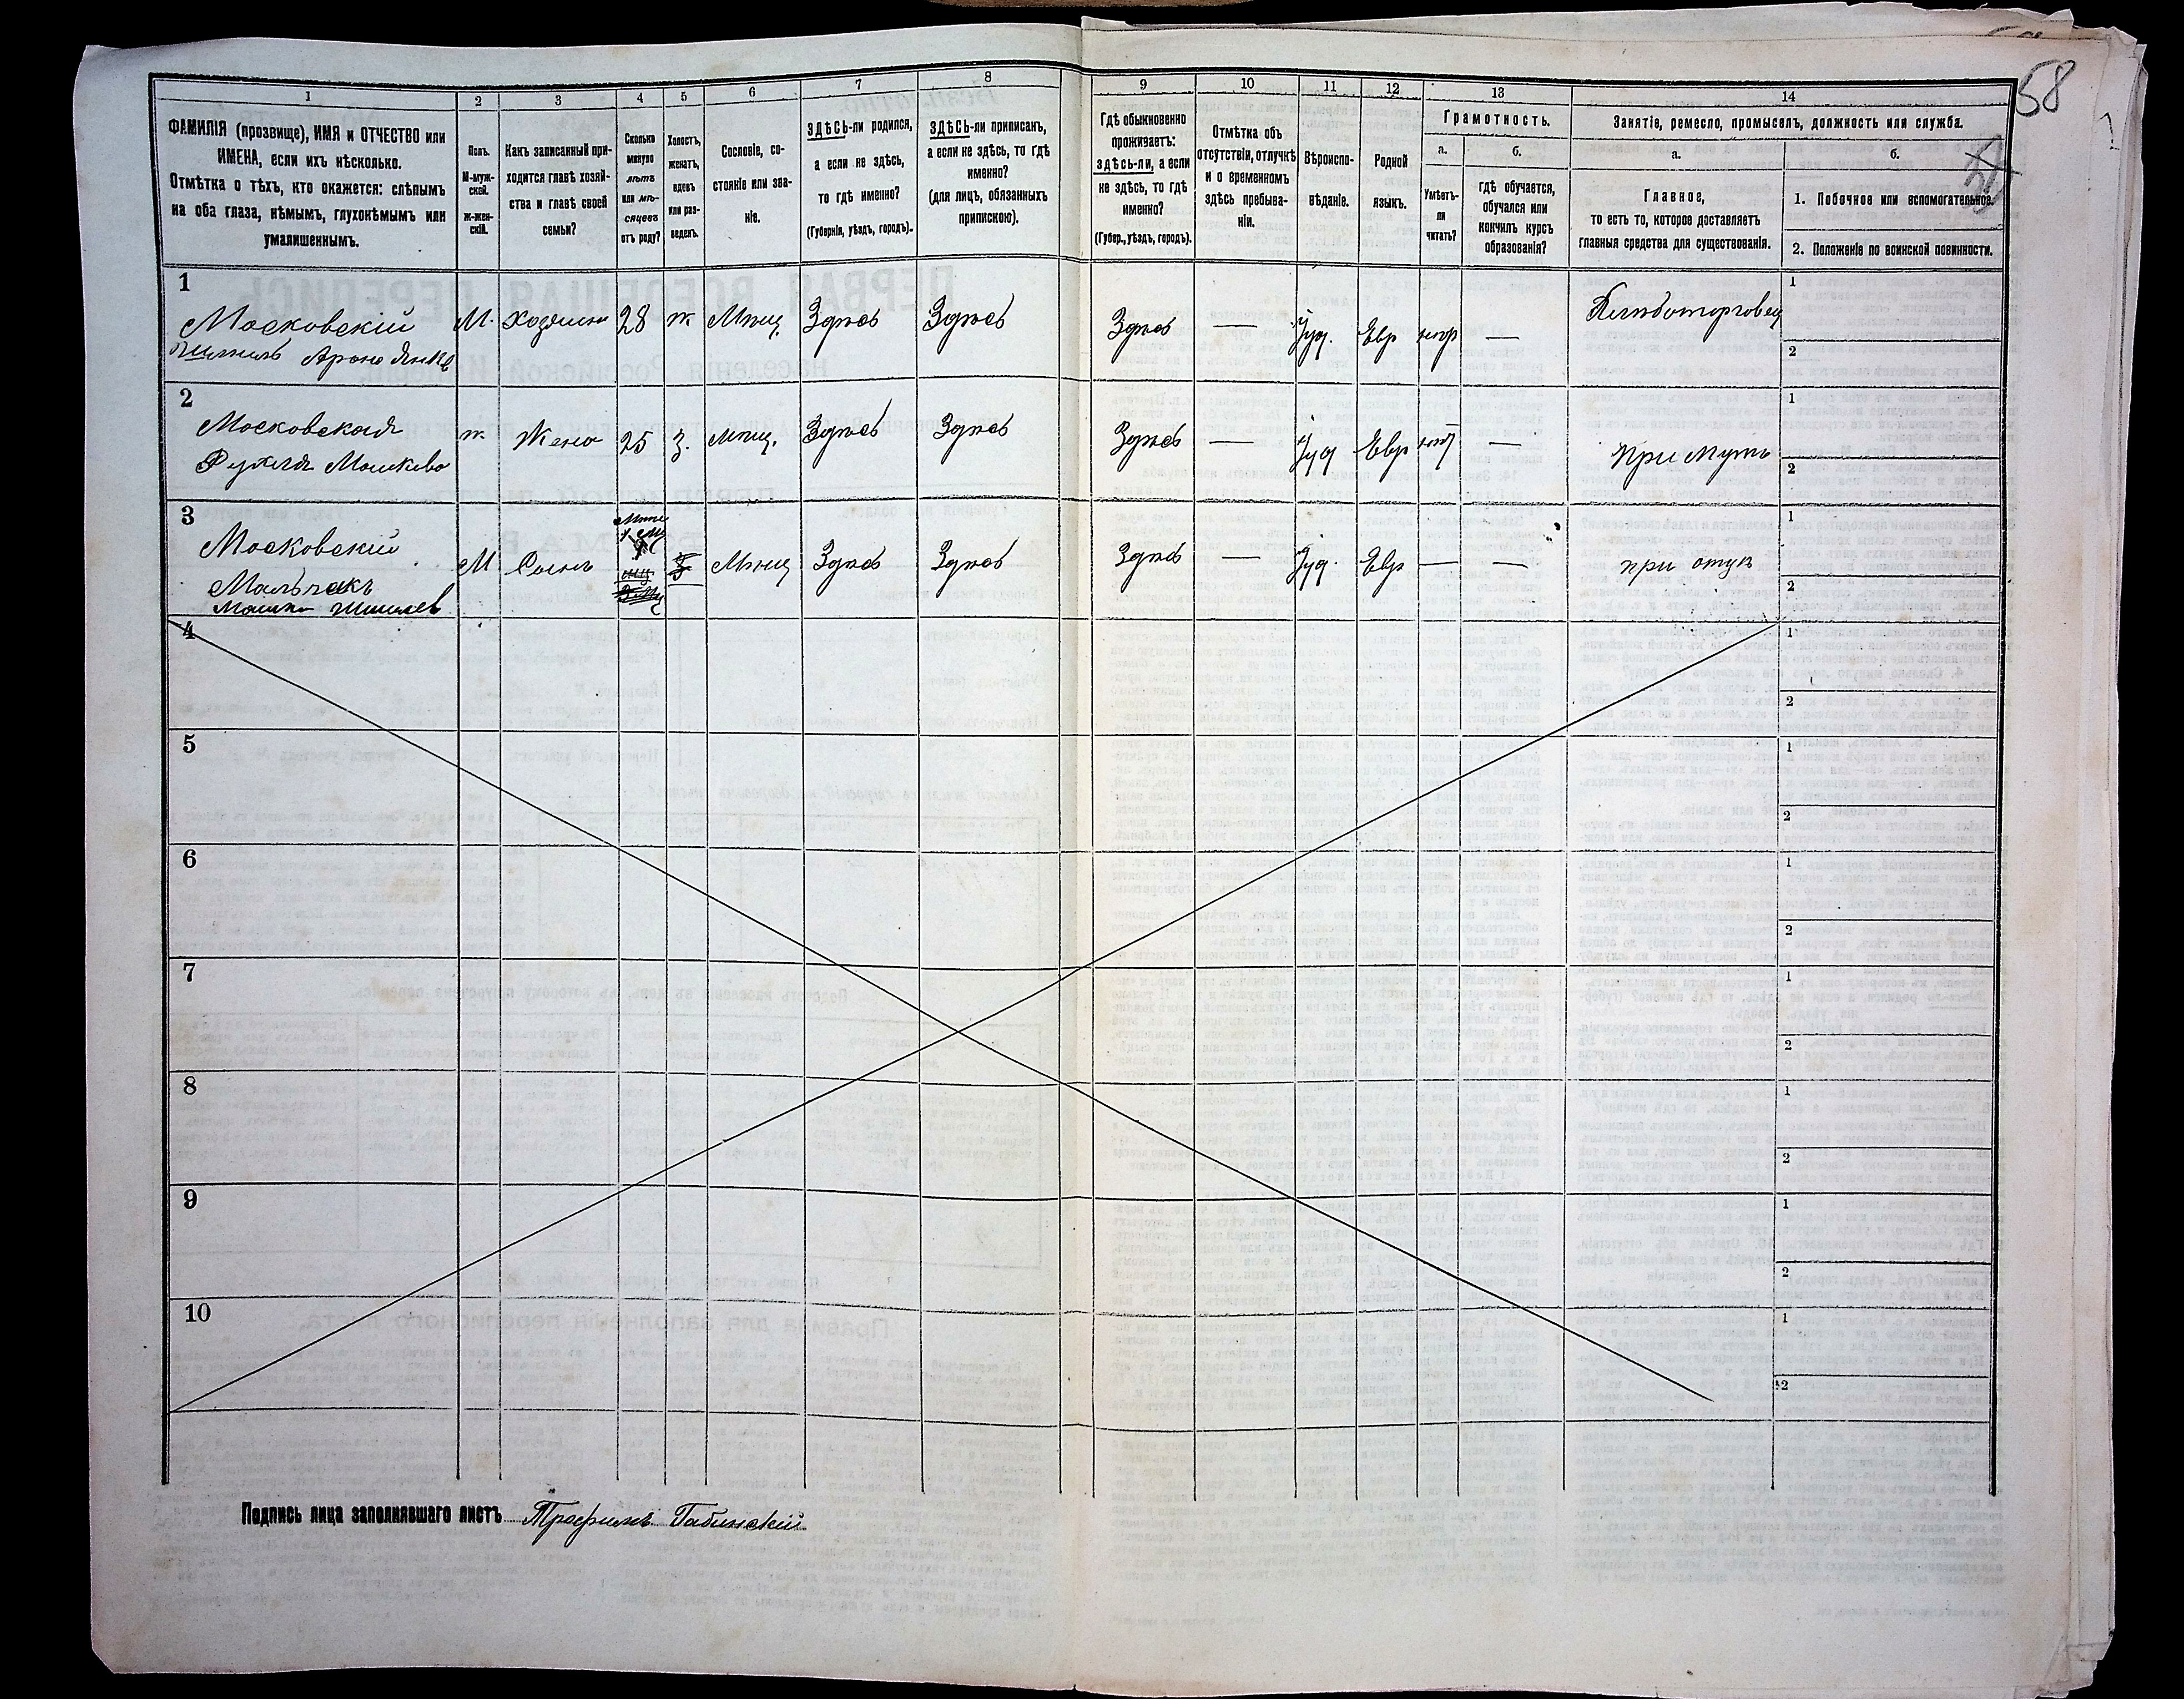 58
1 2 3 4 5 6 7 8 9 10 11 12 13 14
ФАМИЛІЯ (прозвище), ИМЯ и ОТЧЕСТВО или
ИМЕНА, если ихъ нѣсколько.
Отмѣтка о тѣхъ, кто окажется: слѣпымъ
на оба глаза, нѣмымъ, глухонѣмымъ или
умалишеннымъ.
Полъ.
М-муж-
ской.
Ж-жен-
скій.
Какъ записанный при-
ходится главѣ хозяй-
ства и главѣ своей
семьи?
Сколько
минуло
лѣтъ
или мѣ-
сяцевъ
отъ роду?
Холостъ,
женатъ,
вдовъ
или раз-
веденъ.
Сословіе, со-
стояніе или зва-
ніе.
ЗДѢСЬ-ли родился,
а если не здѣсь,
то гдѣ именно?
(Губернія, уѣздъ, городъ).
ЗДѢСЬ-ли приписанъ,
а если не здѣсь, то гдѣ
именно?
(для лицъ, обязанныхъ
припискою).
Гдѣ обыкновенно
проживаетъ:
здѣсь-ли, а если
не здѣсь, то гдѣ
именно?
(Губер., уѣздъ, городъ).
Отмѣтка объ
отсутствіи, отлучкѣ
и о временномъ
здѣсь пребыва-
ніи.
Вѣроиспо-
вѣданіе.
Родной
языкъ.
Грамотность.
а.
Умѣетъ-
ли
читать?
б.
гдѣ обучается,
обучался или
кончилъ курсъ
образованія?
Занятіе, ремесло, промыселъ, должность или служба.
а.
Главное,
то есть то, которое доставляетъ
главныя средства для существованія.
б.
1. Побочное или вспомогательное.
2. Положеніе по воинской повинности.
1
Московскій М. Хозяинъ 28 ж Мѣщ. Здѣсь Здѣсь Здѣсь — Іуд. Евр — Хлѣботорговец 1
2
2
Московская ж. Жена 25 З. Мѣщ. Здѣсь Здѣсь Здѣсь — Іуд Евр — При мужѣ 1
Рухля Мошкова 2
3
Московскій М Сынъ Мѣщ Здѣсь Здѣсь Здѣсь — Іуд. Евр — — при отцѣ 1
Мальчикъ
Мошко Шмилев 2
4 1
2
5 1
2
6 1
2
7 1
2
8 1
2
9 1
2
10 1
2
Подпись лица заполнявшаго листъ Трофимъ Габинскій